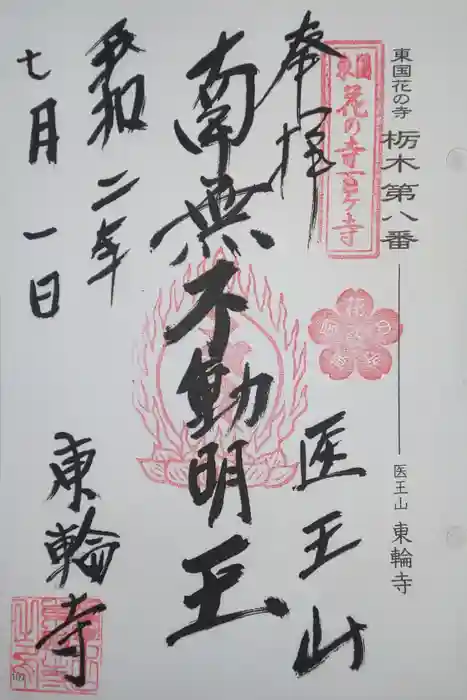 東国花の寺 栃木第八番
医王山 東輪寺
東国
花の寺百ヶ寺
奉拝
医王山
南無不動明王
令和二年
七月一日
東輪寺